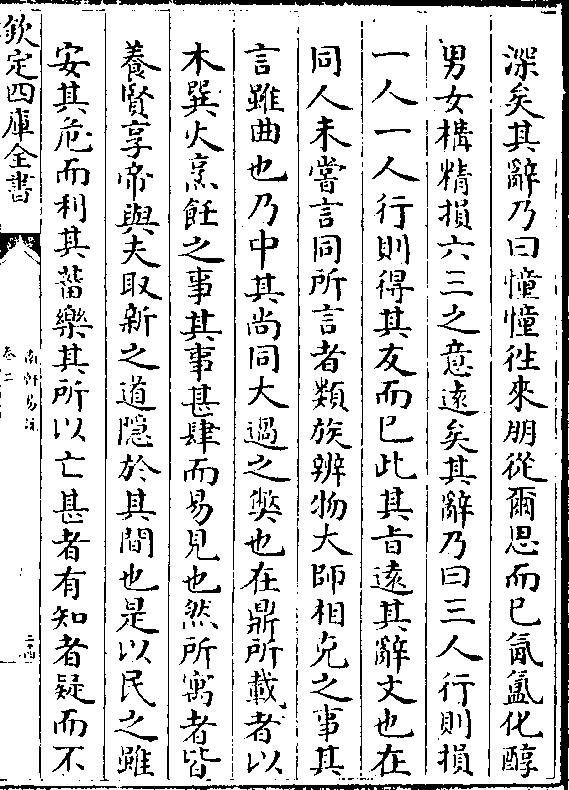 深矣其辭乃曰憧憧徃來朋從爾思而已氤氲化醇
男女構精損六三之意遠矣其辭乃曰三人行則損
一人一人行則得其友而已此其旨遠其辭文也在
同人未嘗言同所言者類族辨物大師相克之事其
言雖曲也乃中其尚同大過之弊也在鼎所載者以
木巽火烹飪之事其事甚肆而易見也然所寓者皆
養賢享帝與夫取新之道隠於其間也是以民之雖
安其危而利其菑樂其所以亡甚者有知者疑而不
欽定四庫全書
南軒易說
卷二
二十四